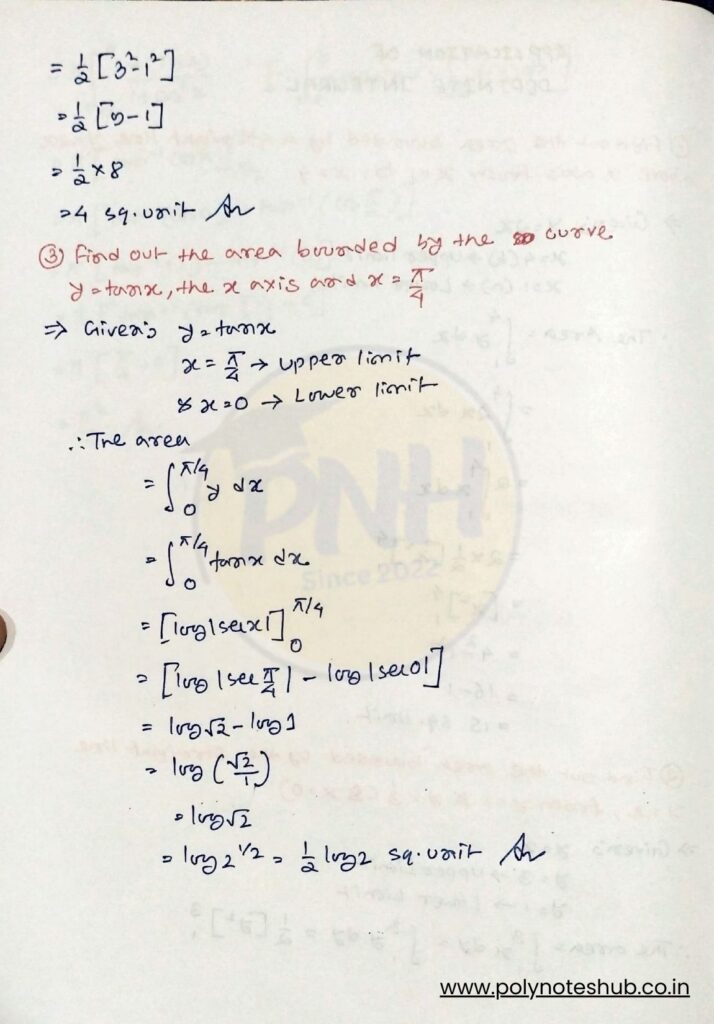 = 1/2 [3²-1²]
= 1/2 [9-1]
= 1/2 × 8
= 4 sq. unit Ans
③ Find out the area bounded by the curve
y = tanx, the x axis and x = π/4
⇒ Given:- y = tanx
x = π/4 → upper limit
& x = 0 → Lower limit
∴ The area
= ∫₀^π/4 y dx
= ∫₀^π/4 tanx dx
= [log|secx|]₀^π/4
= [log|sec π/4| - log|sec0|]
= log√2 - log1
= log (√2/1)
= log√2
= log2^1/2 = 1/2 log2 sq. unit Ans
PNH
Since 2022
www.polynoteshub.co.in